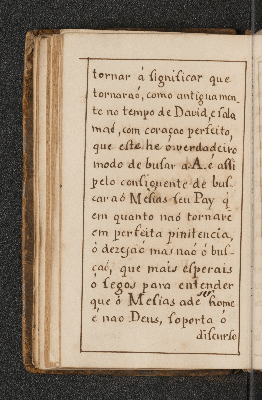 tornar á significar que
tornaraó, como antiguamen-
te no tempo de David, e Sala
maó, com coraçao perfeito,
que este he o verdadeiro
modo de busar a A. é assi
pelo consiguente de bus-
car aó Mesias seu Pay q̃
em quanto naó tornare
em perfeita pinitencia,
ó dezejaó mas naó ó bus-
çaó, que mais esperais
ó segos para entender
que ó Mesias ade ser home
é nao Deus, soporta ó
discurso